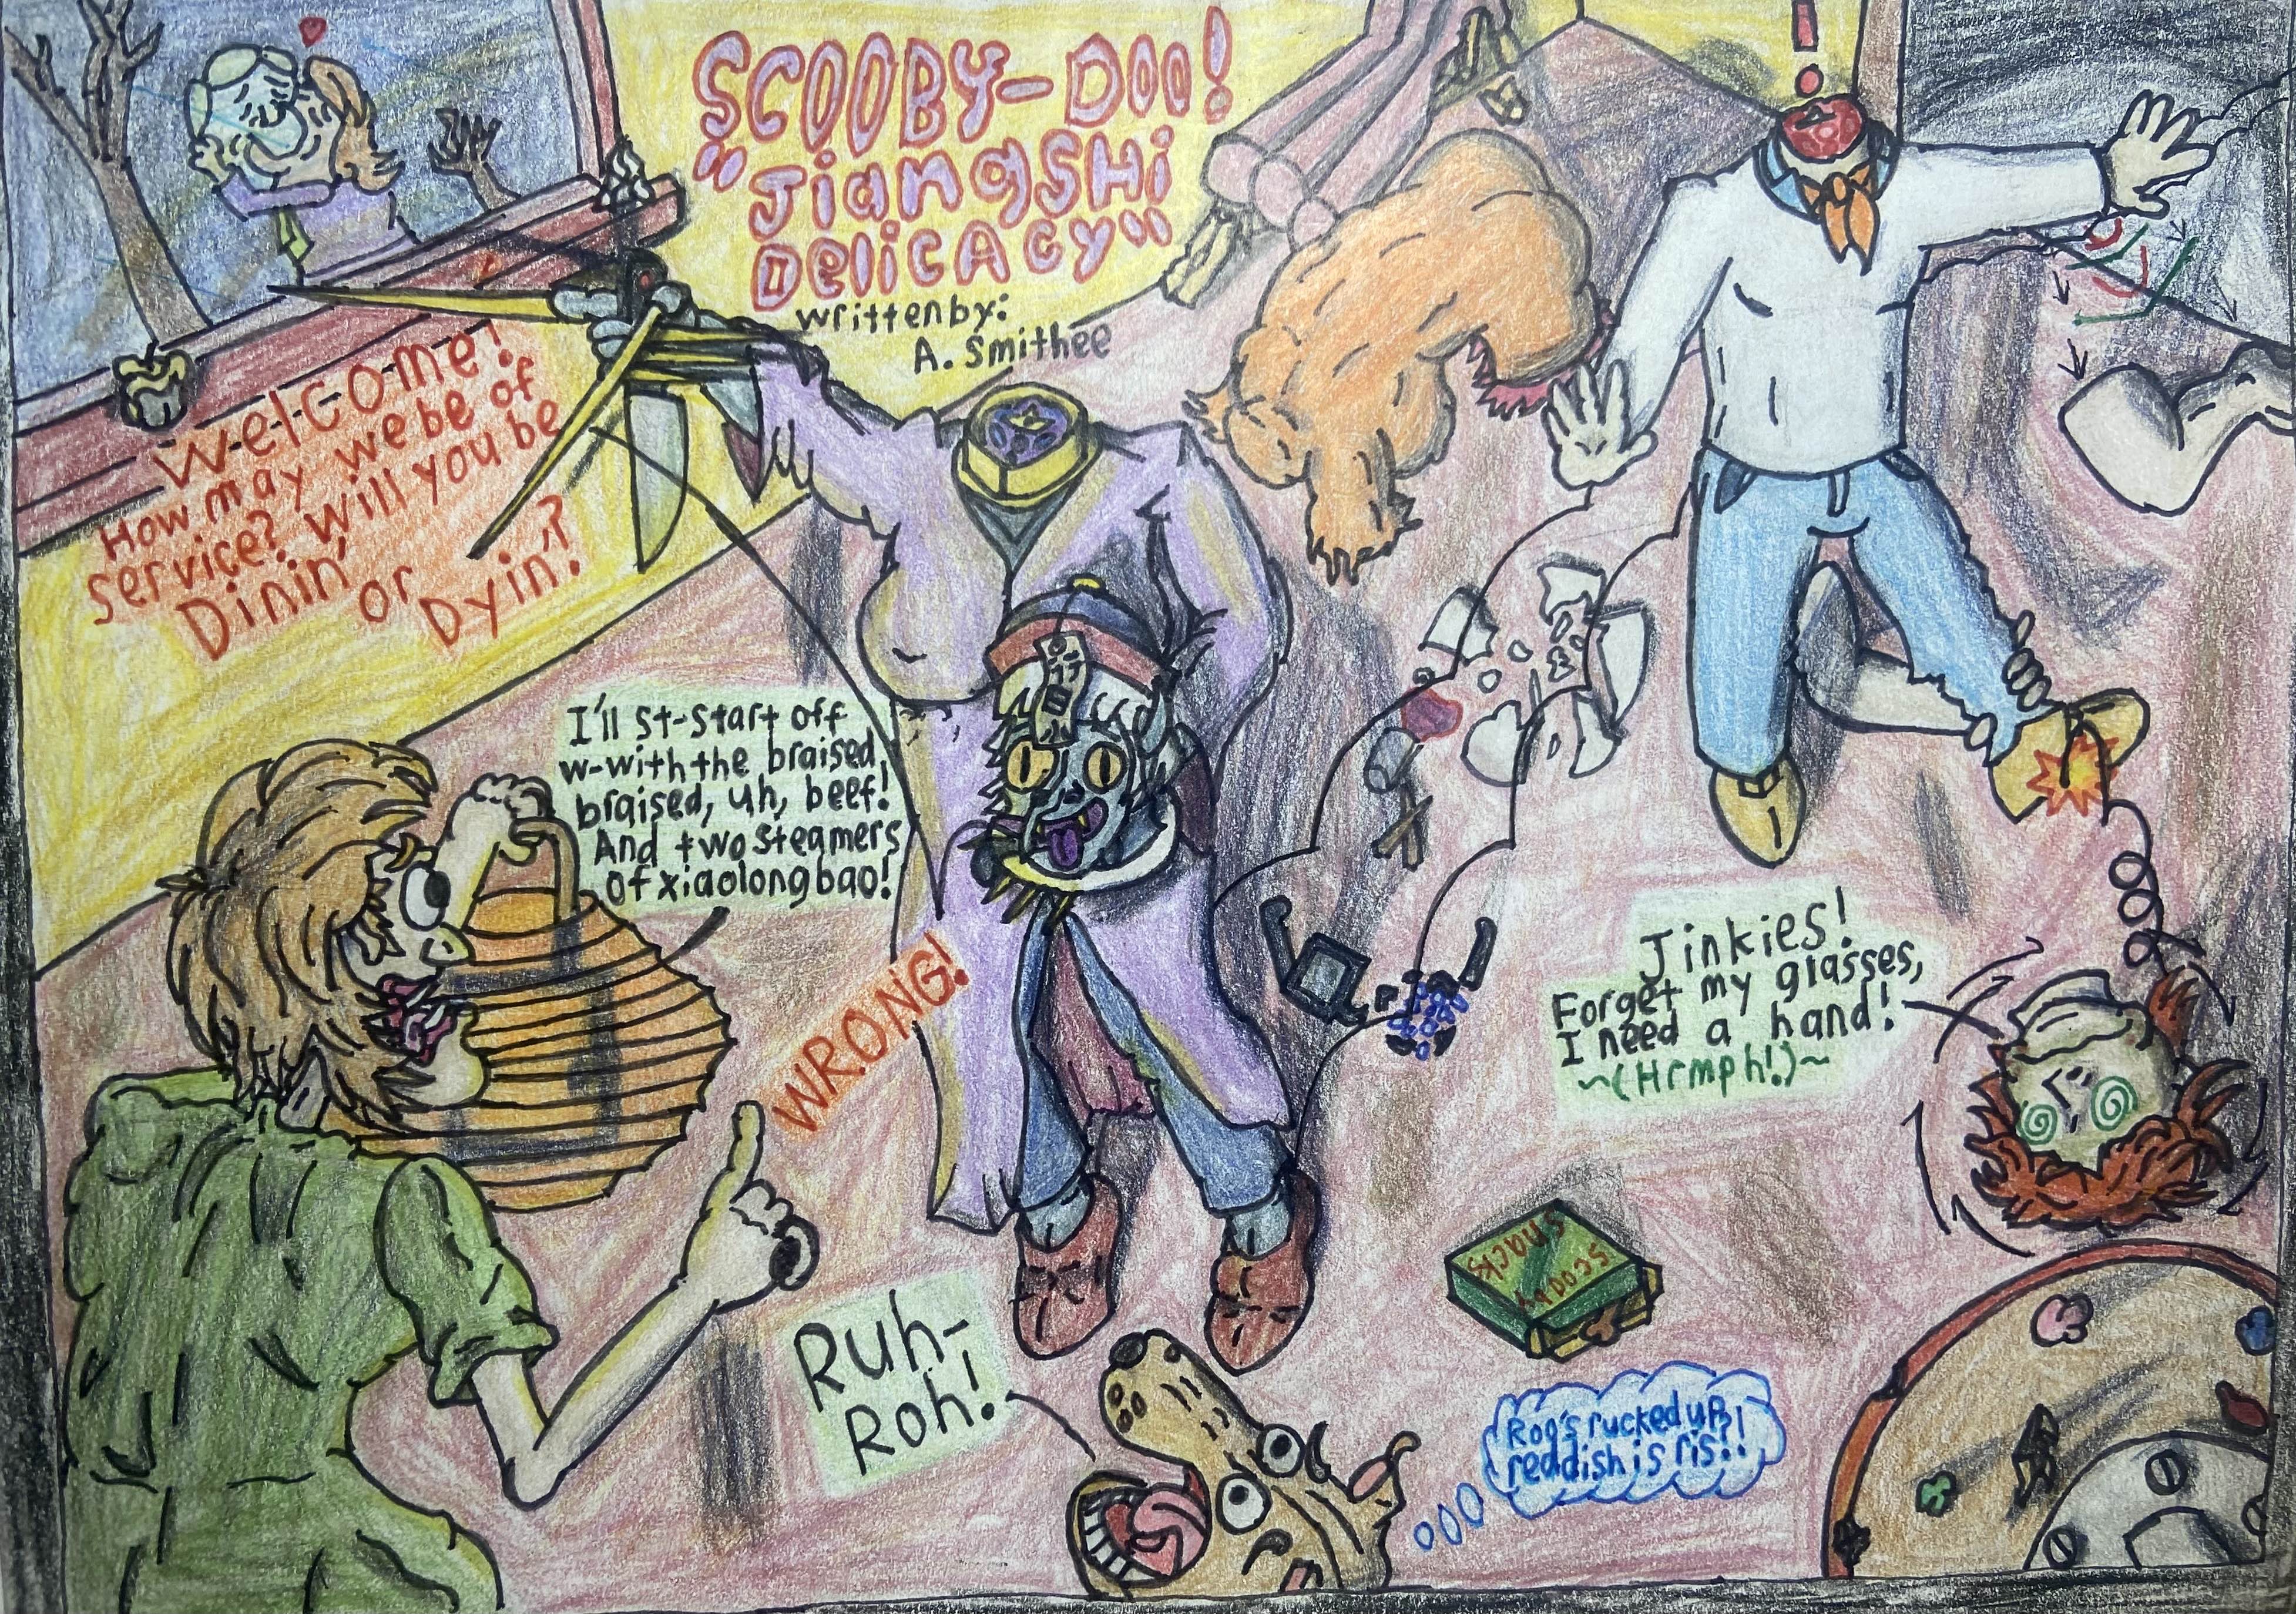 SCOOBY-DOO!
"Jiangshi
Delicacy"
written by:
A. Smithee
Welcome!
How may we be of
service? Will you be
Dinin'
or
Dyin'?
I'll st-start off
w-with the braised,
braised, uh, beef!
And two steamers
of xiaolongbao!
WRONG!
Jinkies!
Forget my glasses,
I need a hand!
~(Hrmph!)~
Ruh-
Roh!
Scooby
Snacks
Roo's rucked up,
reddish is ris!!
!